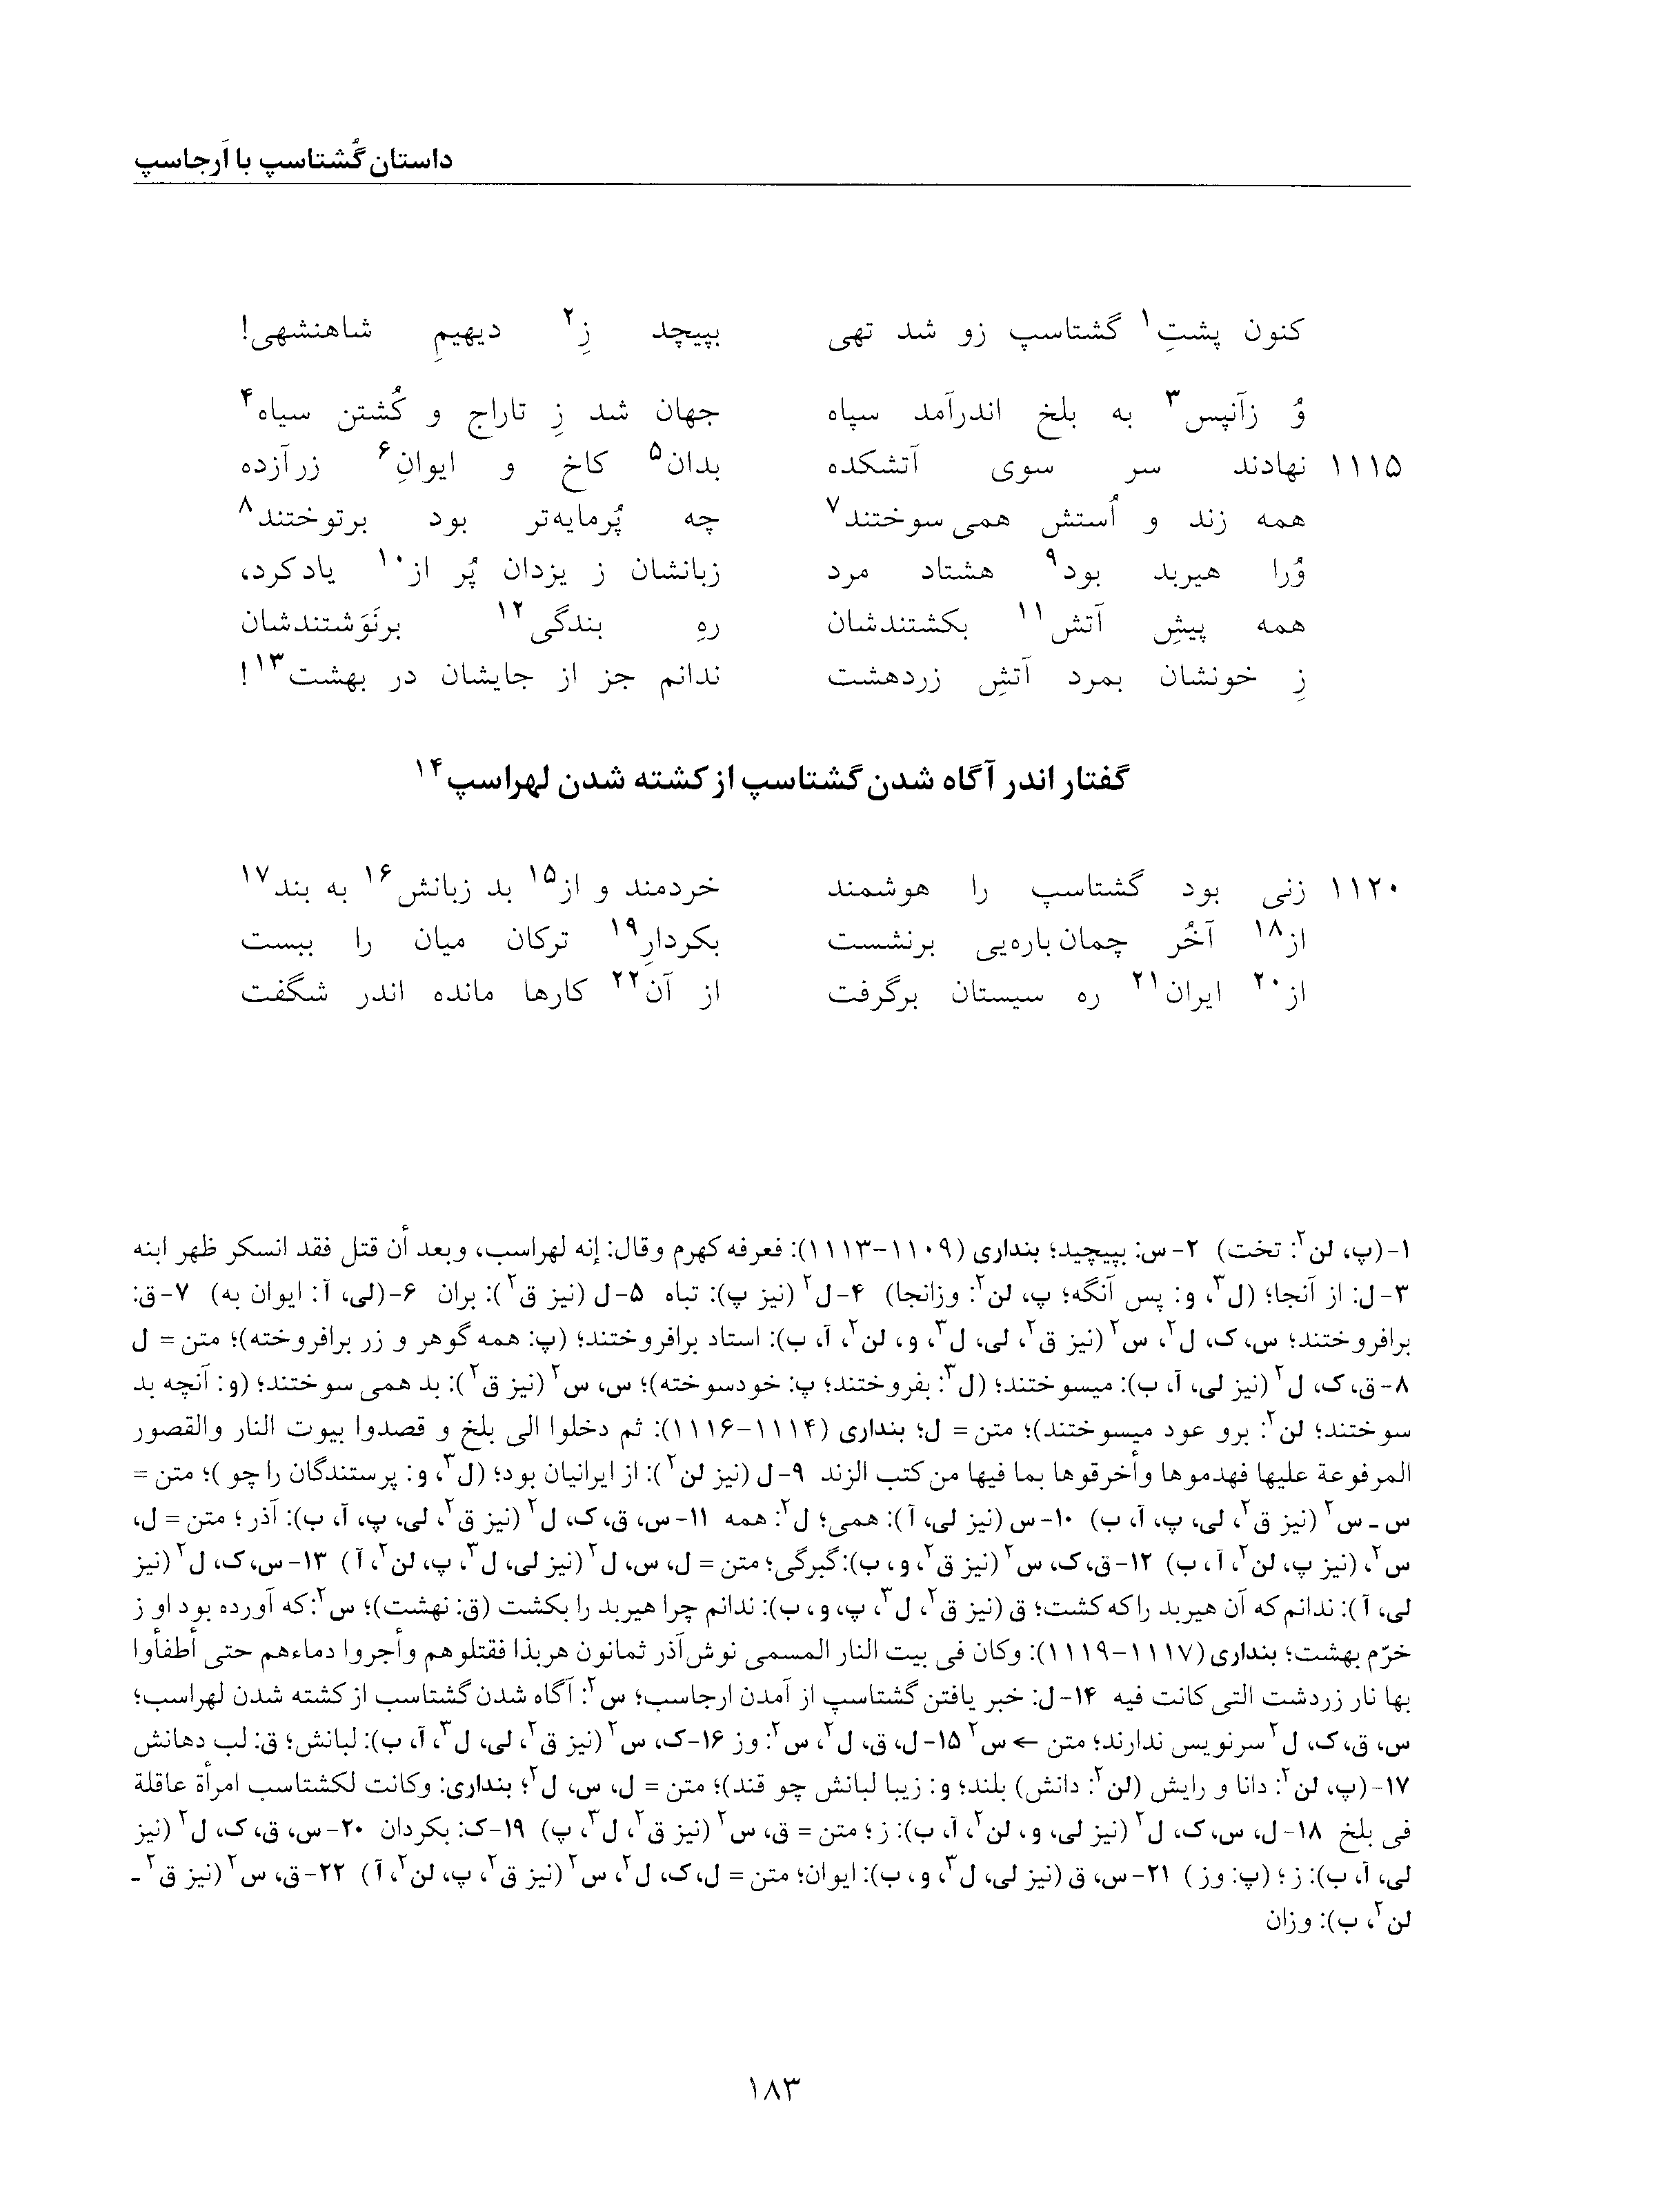 داستان گُشتاسپ با اَرجاسپ
کنون پشتِ۱ گشتاسپ زو شد تهی بپیچد زِ۲ دیهیمِ شاهنشهی!
وُ زآنپس۳ به بلخ اندرآمد سپاه جهان شد زِ تاراج و کُشتن سیاه۴
۱۱۱۵ نهادند سر سوی آتشکده بدان۵ کاخ و ایوانِ۶ زرآزده
همه زند و اُستش همی‌سوختند۷ چه پُرمایه‌تر بود برتوختند۸
وُرا هیربد بود۹ هشتاد مرد زبانشان ز یزدان پُر از۱۰ یادکرد،
همه پیشِ آتش۱۱ بکشتندشان رهِ بندگی۱۲ برنَوَشتندشان
زِ خونشان بمرد آتشِ زردهشت ندانم جز از جایشان در بهشت۱۳!
گفتار اندر آگاه شدن گشتاسپ از کشته شدن لهراسپ۱۴
۱۱۲۰ زنی بود گشتاسپ را هوشمند خردمند و از۱۵ بد زبانش۱۶ به بند۱۷
از۱۸ آخُر چمان‌باره‌یی برنشست بکردارِ۱۹ ترکان میان را ببست
از۲۰ ایران۲۱ ره سیستان برگرفت از آن۲۲ کارها مانده اندر شگفت
۱-(پ، لن۲: تخت) ۲-س: بپیچید؛ بنداری (۱۱۰۹-۱۱۱۳): فعرفه کهرم وقال: إنه لهراسب، وبعد أن قتل فقد انسکر ظهر ابنه
۳-ل: از آنجا؛ (ل۳، و: پس آنگه؛ پ، لن۲: وزانجا) ۴-ل۲ (نیز پ): تباه ۵-ل (نیز ق۲): بران ۶-(لی، آ: ایوان به) ۷-ق:
برافروختند؛ س، ک، ل۲، س۲ (نیز ق۲، لی، ل۳، و، لن۲، آ، ب): استاد برافروختند؛ (پ: همه گوهر و زر برافروخته)؛ متن = ل
۸-ق، ک، ل۲ (نیز لی، آ، ب): میسوختند؛ (ل۳: بفروختند؛ پ: خودسوخته)؛ س، س۲ (نیز ق۲): بد همی سوختند؛ (و: آنچه بد
سوختند؛ لن۲: برو عود میسوختند)؛ متن = ل؛ بنداری (۱۱۱۴-۱۱۱۶): ثم دخلوا الی بلخ و قصدوا بیوت النار والقصور
المرفوعة علیها فهدموها وأخرقوها بما فیها من کتب الزند ۹-ل (نیز لن۲): از ایرانیان بود؛ (ل۳، و: پرستندگان را چو )؛ متن =
س ـ س۲ (نیز ق۲، لی، پ، آ، ب) ۱۰-س (نیز لی، آ): همی؛ ل۲: همه ۱۱-س، ق، ک، ل۲ (نیز ق۲، لی، پ، آ، ب): آذر؛ متن = ل،
س۲، (نیز پ، لن۲، آ، ب) ۱۲-ق، ک، س۲ (نیز ق۲، و، ب): گبرگی؛ متن = ل، س، ل۲ (نیز لی، ل۳، پ، لن۲، آ) ۱۳-س، ک، ل۲ (نیز
لی، آ): ندانم که آن هیربد را که کشت؛ ق (نیز ق۲، ل۳، پ، و، ب): ندانم چرا هیربد را بکشت (ق: نهشت)؛ س۲: که آورده بود او ز
خرّم بهشت؛ بنداری (۱۱۱۷-۱۱۱۹): وکان فی بیت النار المسمی نوش‌آذر ثمانون هربذا فقتلوهم وأجروا دماءهم حتی أطفأوا
بها نار زردشت التی کانت فیه ۱۴-ل: خبر یافتن گشتاسپ از آمدن ارجاسب؛ س۲: آگاه شدن گشتاسب از کشته شدن لهراسب؛
س، ق، ک، ل۲ سرنویس ندارند؛ متن ← س۲ ۱۵-ل، ق، ل۲، س۲: وز ۱۶-ک، س۲ (نیز ق۲، لی، ل۳، آ، ب): لبانش؛ ق: لب دهانش
۱۷-(پ، لن۲: دانا و رایش (لن۲: دانش) بلند؛ و: زیبا لبانش چو قند)؛ متن = ل، س، ل۲؛ بنداری: وکانت لکشتاسب امرأة عاقلة
فی بلخ ۱۸-ل، س، ک، ل۲ (نیز لی، و، لن۲، آ، ب): ز؛ متن = ق، س۲ (نیز ق۲، ل۳، پ) ۱۹-ک: بکردان ۲۰-س، ق، ک، ل۲ (نیز
لی، آ، ب): ز؛ (پ: وز ) ۲۱-س، ق (نیز لی، ل۳، و، ب): ایوان؛ متن = ل، ک، ل۲، س۲ (نیز ق۲، پ، لن۲، آ) ۲۲-ق، س۲ (نیز ق۲ ـ
لن۲، ب): وزان
۱۸۳